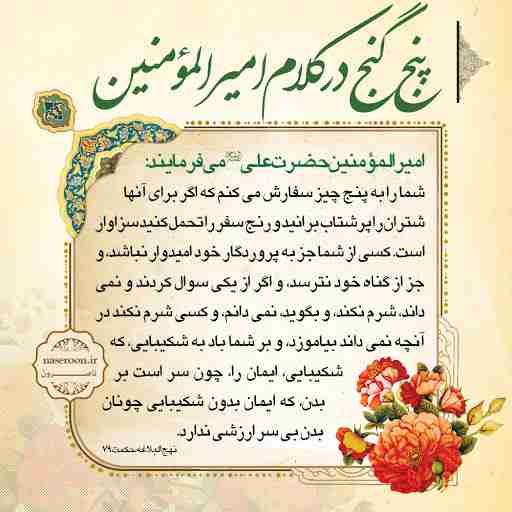 پنج گنج در کلام امیرالمؤمنین
امیرالمؤمنین حضرت علی می فرمایند:
شما را به پنج چیز سفارش می کنم که اگر برای آنها
شتران را پرشتاب برانید و رنج سفر را تحمل کنید سزاوار
است. کسی از شما جز به پروردگار خود امیدوار نباشد، و
جز از گناه خود نترسد، و اگر از یکی سوال کردند و نمی
داند، شرم نکند، و بگوید، نمی دانم، و کسی شرم نکند در
آنچه نمی داند بیاموزد، و بر شما باد به شکیبایی، که
شکیبایی، ایمان را، چون سر است بر
بدن، که ایمان بدون شکیبایی چونان
بدن بی سر ارزشی ندارد.
نهج البلاغه حکمت ۷۹
naseroon.ir
ناصرون